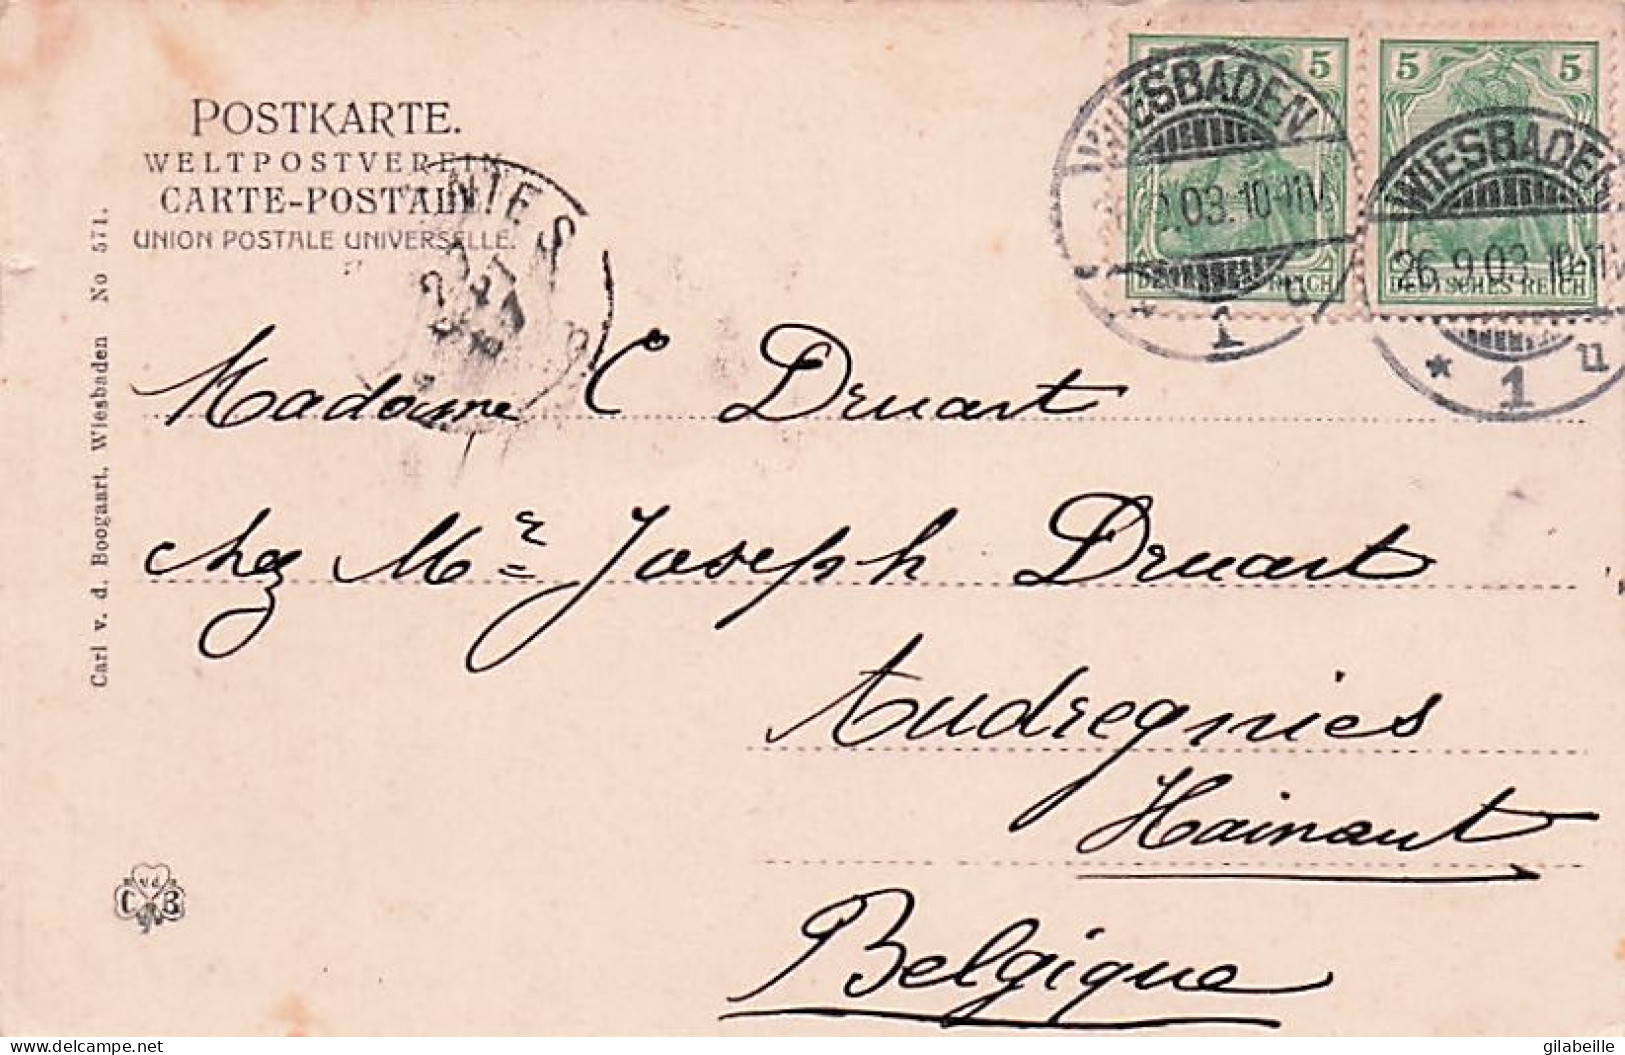 POSTKARTE.
WELTPOSTVEREIN
CARTE-POSTALE
UNION POSTALE UNIVERSELLE.
Carl v. d. Boogaart, Wiesbaden No 571.
5
5 5
WIESBADEN
.03. 10-11V.
* 1 u
WIESBADEN
26.9.03. 10-11V
* 1 u
DEUTSCHES REICH
DEUTSCHES REICH
Madame C Druart
chez Mr Joseph Druart
Audregnies
Hainaut
Belgique
C v d B
delcampe.net
gilabeille